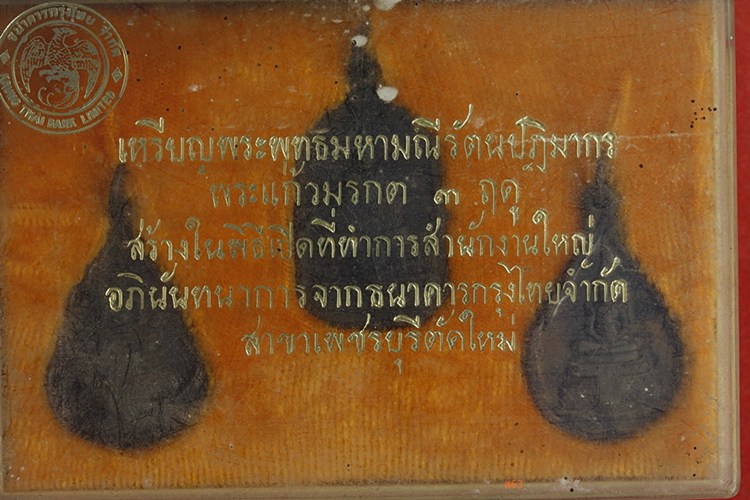 ธนาคารกรุงไทย จำกัด
KRUNG THAI BANK LIMITED
เหรียญพระพุทธมหามณีรัตนปฏิมากร
พระแก้วมรกต ๓ ฤดู
สร้างในพิธีเปิดที่ทำการสำนักงานใหญ่
อภินันทนาการจากธนาคารกรุงไทยจำกัด
สาขาเพชรบุรีตัดใหม่